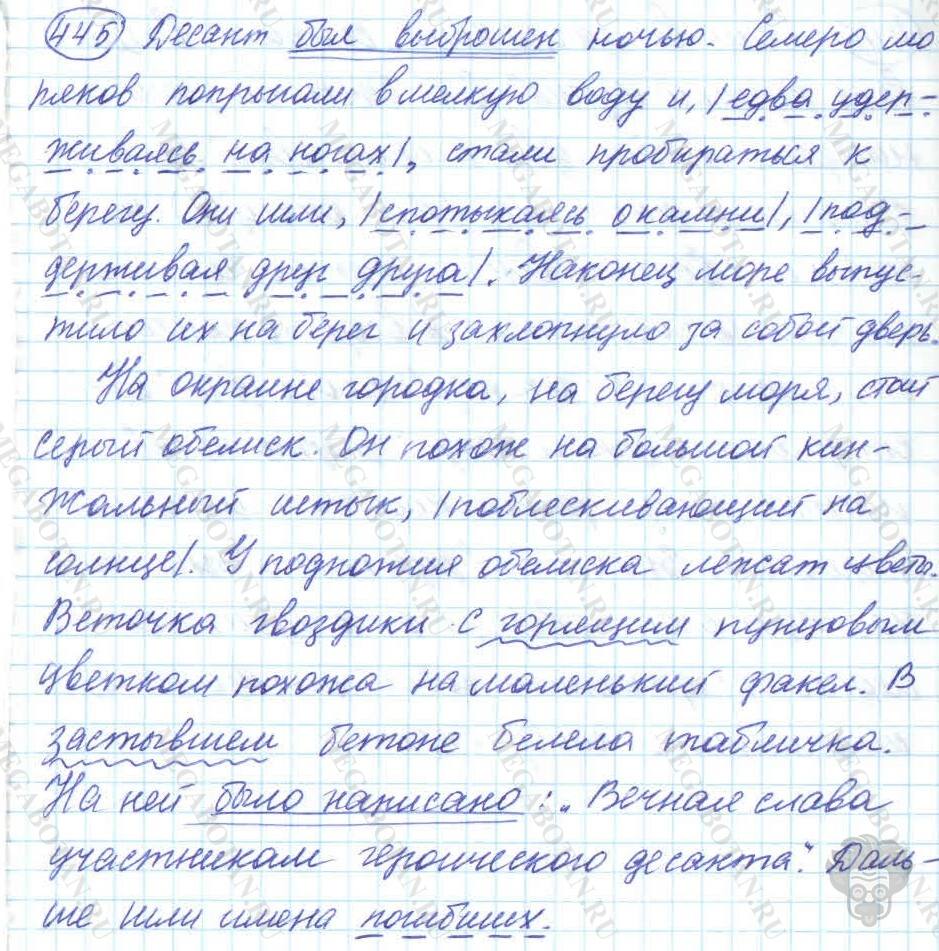 445 Десант был выброшен ночью. Семеро мо
ряков попрыгали в мелкую воду и, |едва удер-
живаясь на ногах|, стали пробираться к
берегу. Они шли, |спотыкаясь о камни|, |под-
держивая друг друга|. Наконец море выпус-
тило их на берег и захлопнуло за собой дверь.
На окраине городка, на берегу моря, стоит
серый обелиск. Он похож на большой кин-
жальный штык, |поблескивающий на
солнце|. У подножия обелиска лежат цветы.
Веточка гвоздики с горящим пунцовым
цветком похожа на маленький факел. В
застывшем бетоне белела табличка.
На ней было написано: „Вечная слава
участникам героического десанта". Даль-
ше шли имена погибших.
MEGABOTAN.RU